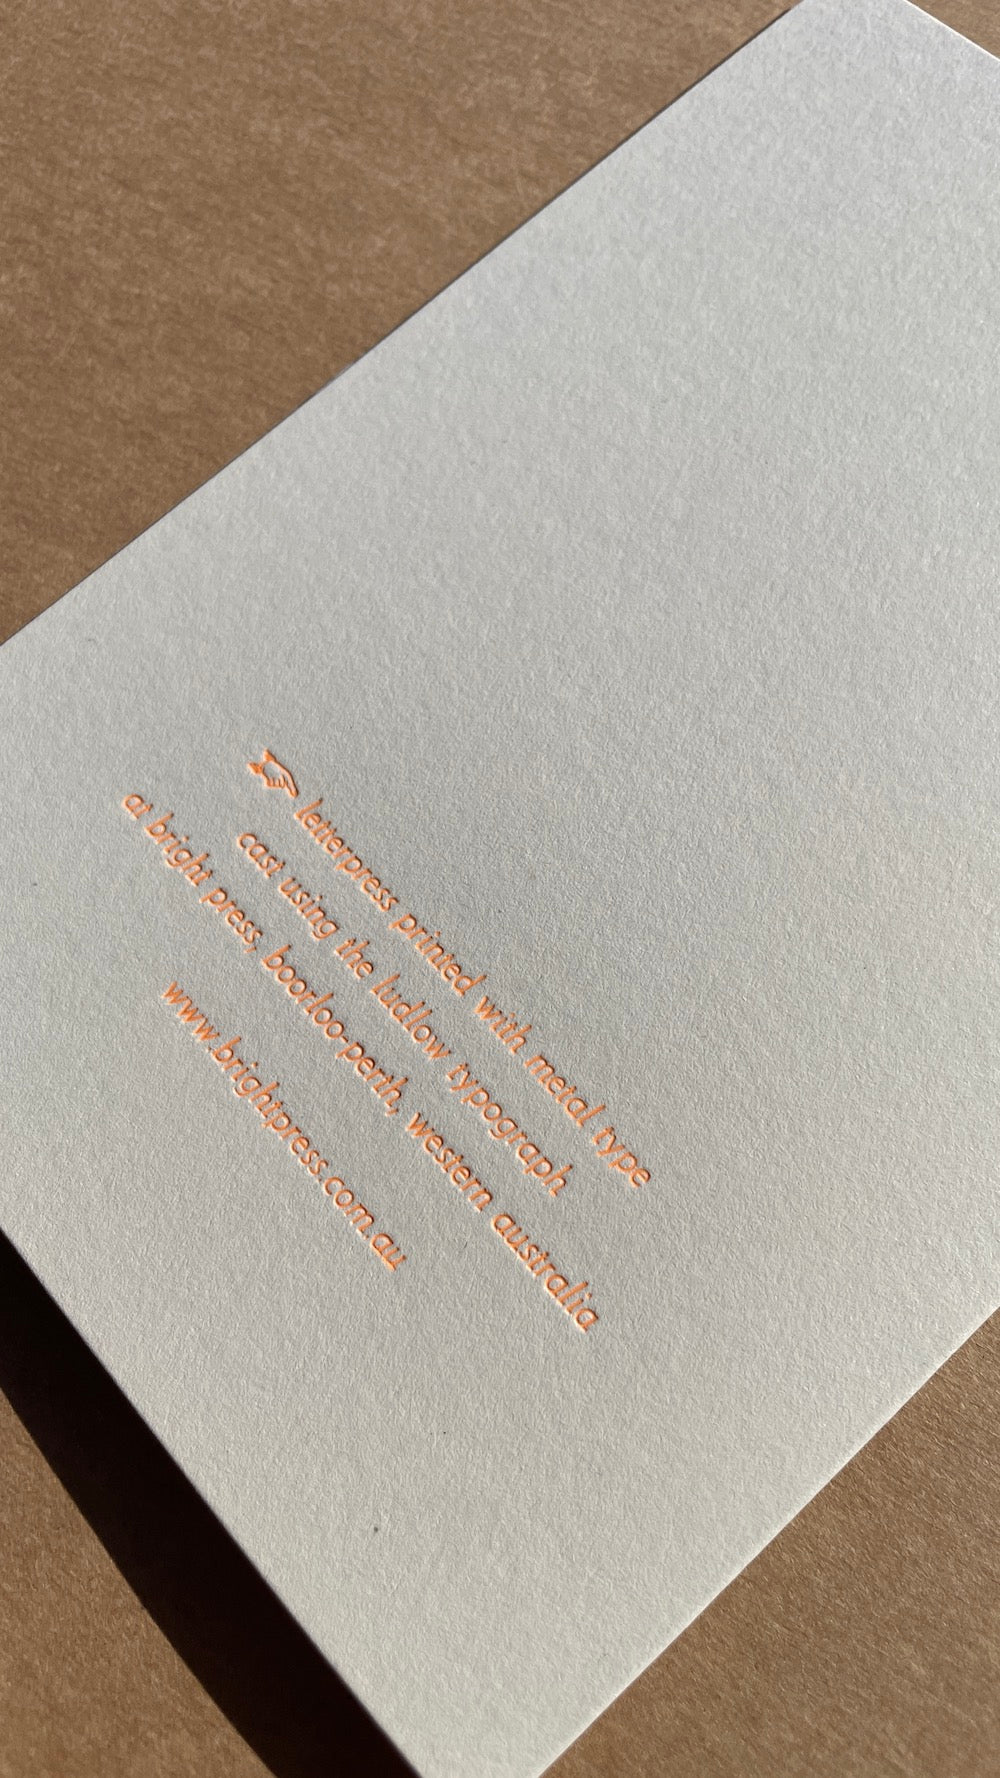 letterpress printed with metal type
cast using the ludlow typograph
at bright press, boorloo-perth, western australia
www.brightpress.com.au